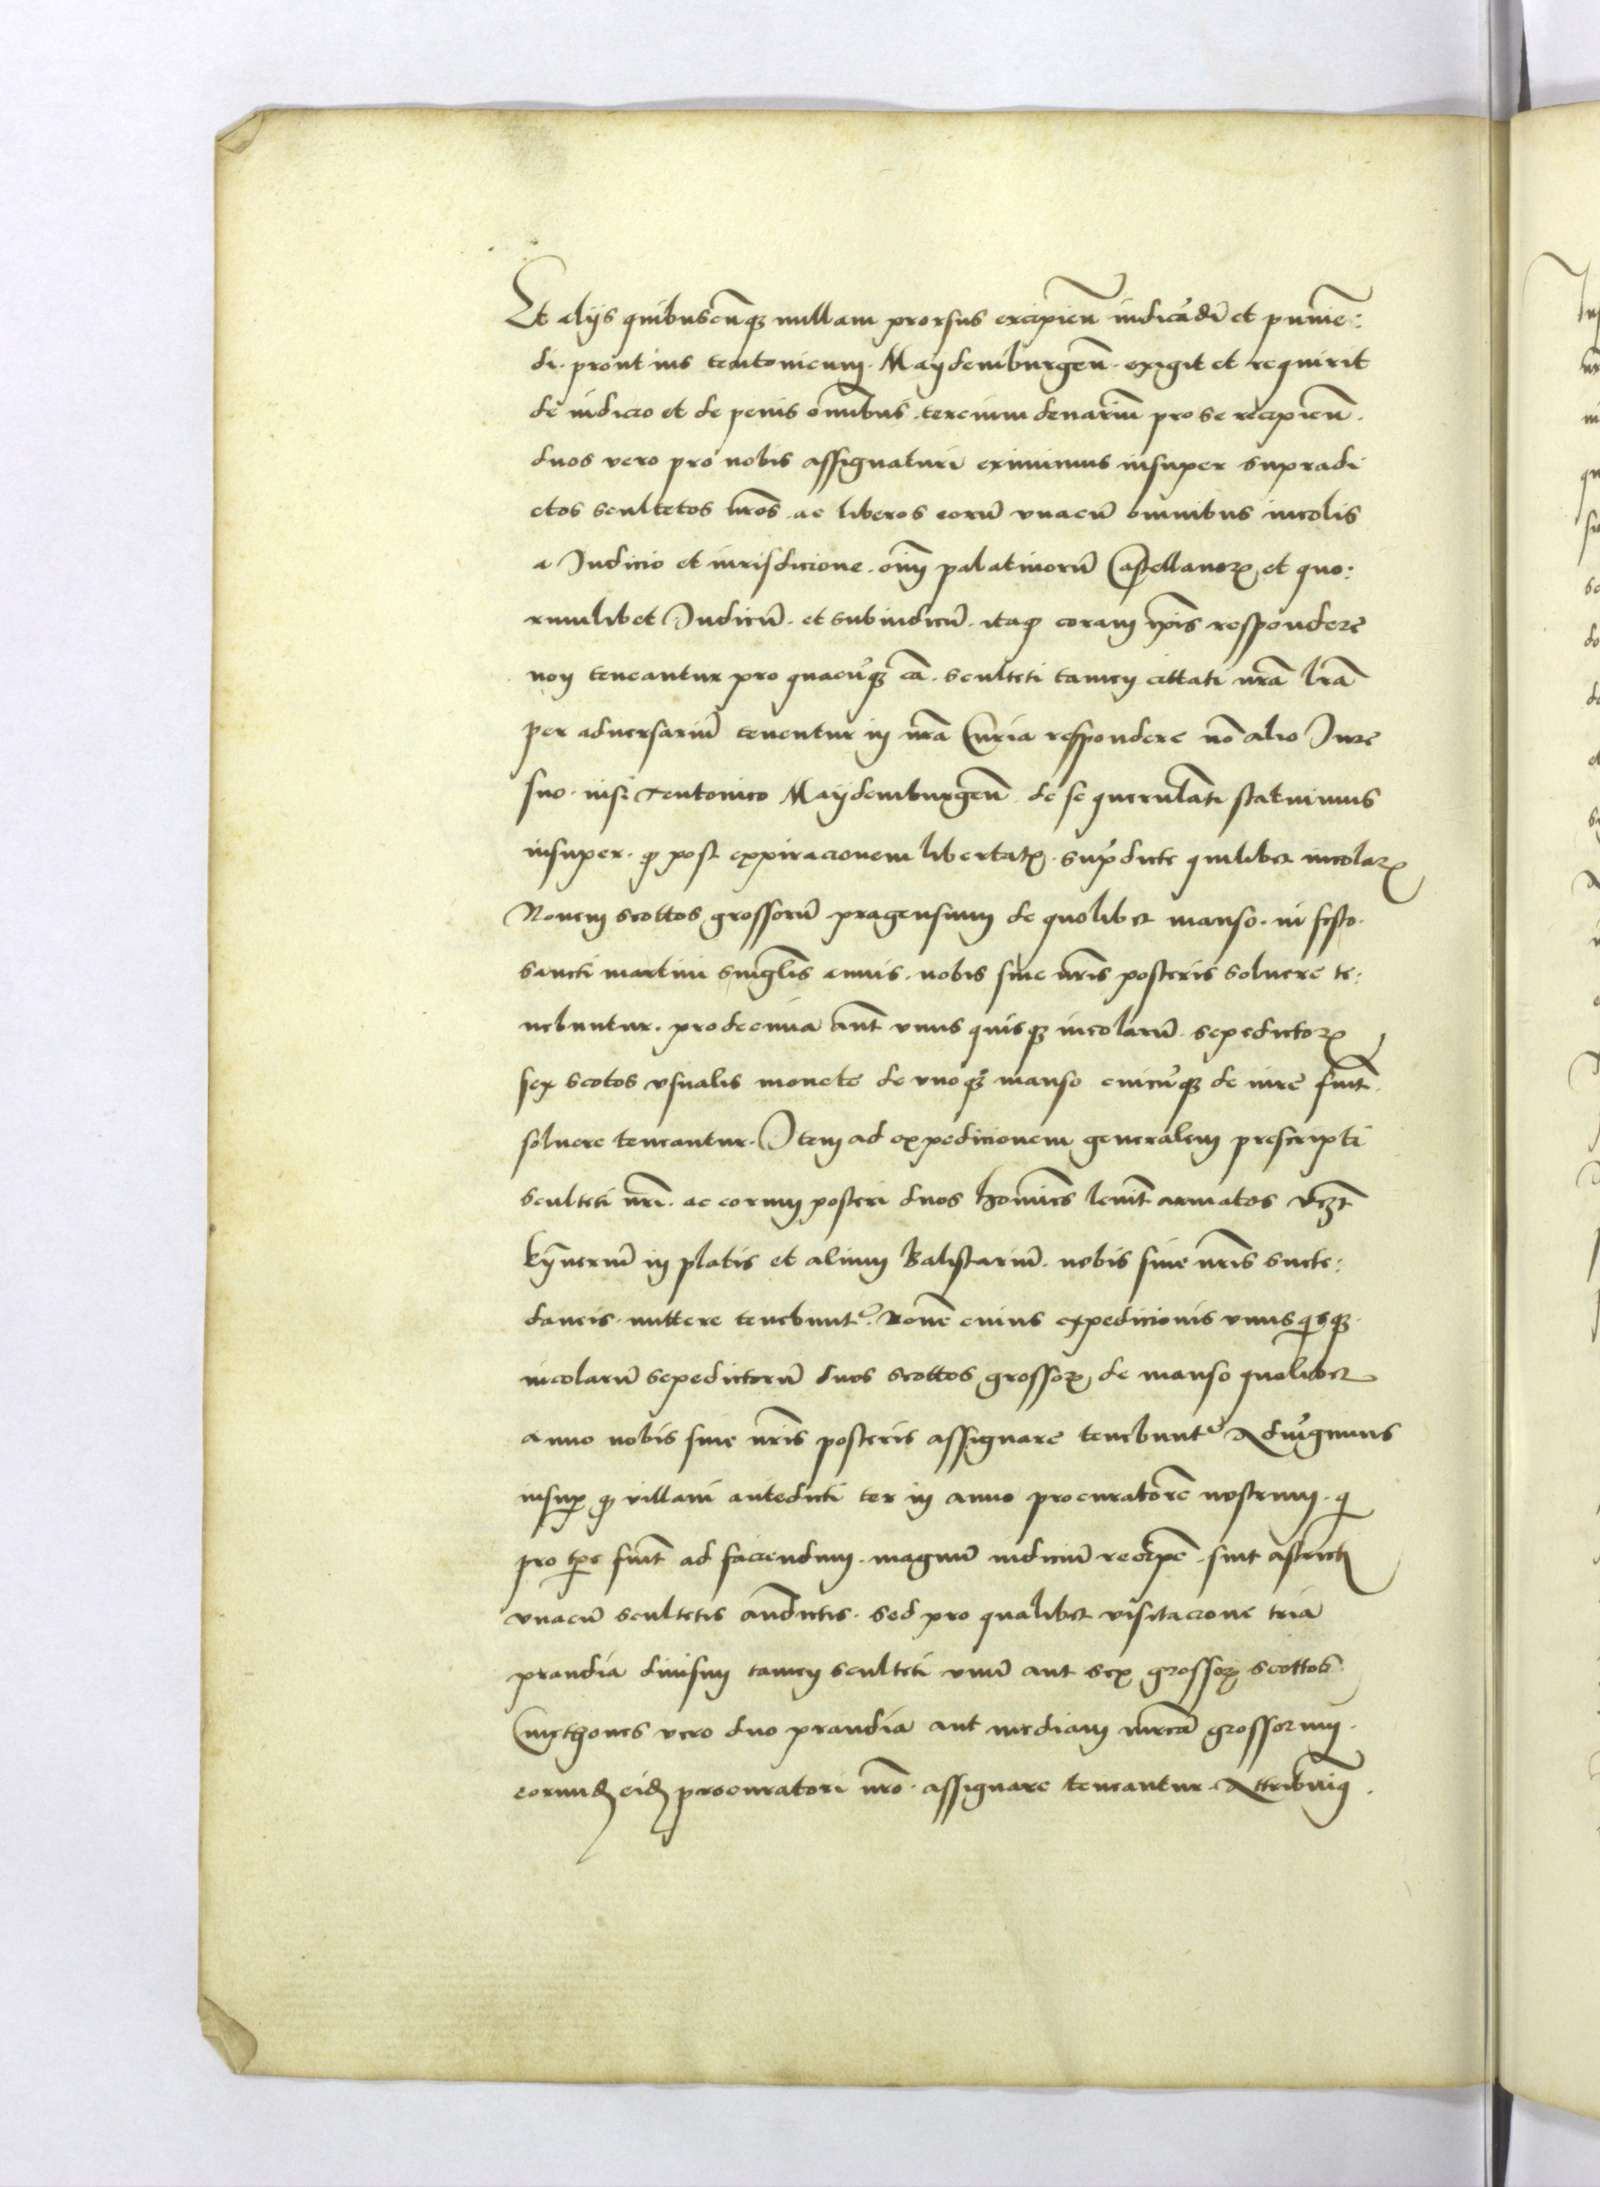 Et alijs quibuscūqꝫ nullam prorsus excipien̄ iudicādi et punie͞:
di. prout ius teutonicum. Maydemburgen̄. exigit et requirit
de iudicio et de penis om̄ibus. tercium denariū pro se recipien̄.
duos vero pro nobis assignaturi eximimus insuper supradi
ctos scultetos nr̄os. ac liberos eorū vnacū omnibus incolis
a Iudicio et iurisdicione. om̄ palatinorū Castellanoꝝ et quo:
rumlibet Iudicū. et subiudicū. itaꝙ coram ip̄is respondere
non teneantur pro quacūqꝫ cā. sculteti tamen cittati nr̄a lr̄a
per aduersariū tenentur in nr̄a Curia respondere nō alio Iure
suo. nisi teutonico Maydemburgen̄ de se querulāti statuimus
insuper. ꝙ post expiracionem libertatꝭ. sup̄dicte quilibet incolaꝝ
Nouem scottos grossorū pragensium de quolibet manso. in festo.
sancti martini singl̄is annis. nobis siue nr̄is posteris soluere te:
nebuntur. pro decima aūt vnus quisqꝫ incolarū. sepedictoꝝ
sex scotos vsualis monete de vnoqꝫ manso cuicūqꝫ de iure fuīt.
soluere teneantur. Item ad expedicionem generalem prescripti
sculteti nr̄i. ac eorum posteri duos homīes leuīt armatos vꝫt
kÿnerū in platis et alium Balistariū. nobis siue nr̄is succe:
daneis. mittere tenebunt᷑. Rōne cuius expedicionis vnusqisqꝫ.
incolarū sepedictorū duos scottos grossoꝝ de manso quolibet
anno nobis siue nr̄is posteris assignare tenebunt᷑ Adiūgimus
insuꝑ ꝙ villani antedicti ter in anno procuratorē nostrum. q̄
pro tꝑe fuīt ad faciendum. magnū iudiciū recipe͞. sint astricti
vnacū scultetis an̄dictis. sed pro qualibet visitacione tria
prandia diuisim tamen sculteti vnū aut sex grossoꝝ scottos
Cmethones vero duo prandia aut mediam mr̄cā grossorum.
eorundē eidē procuratori nr̄o. assignare teneantur. Attribuīꝰ.